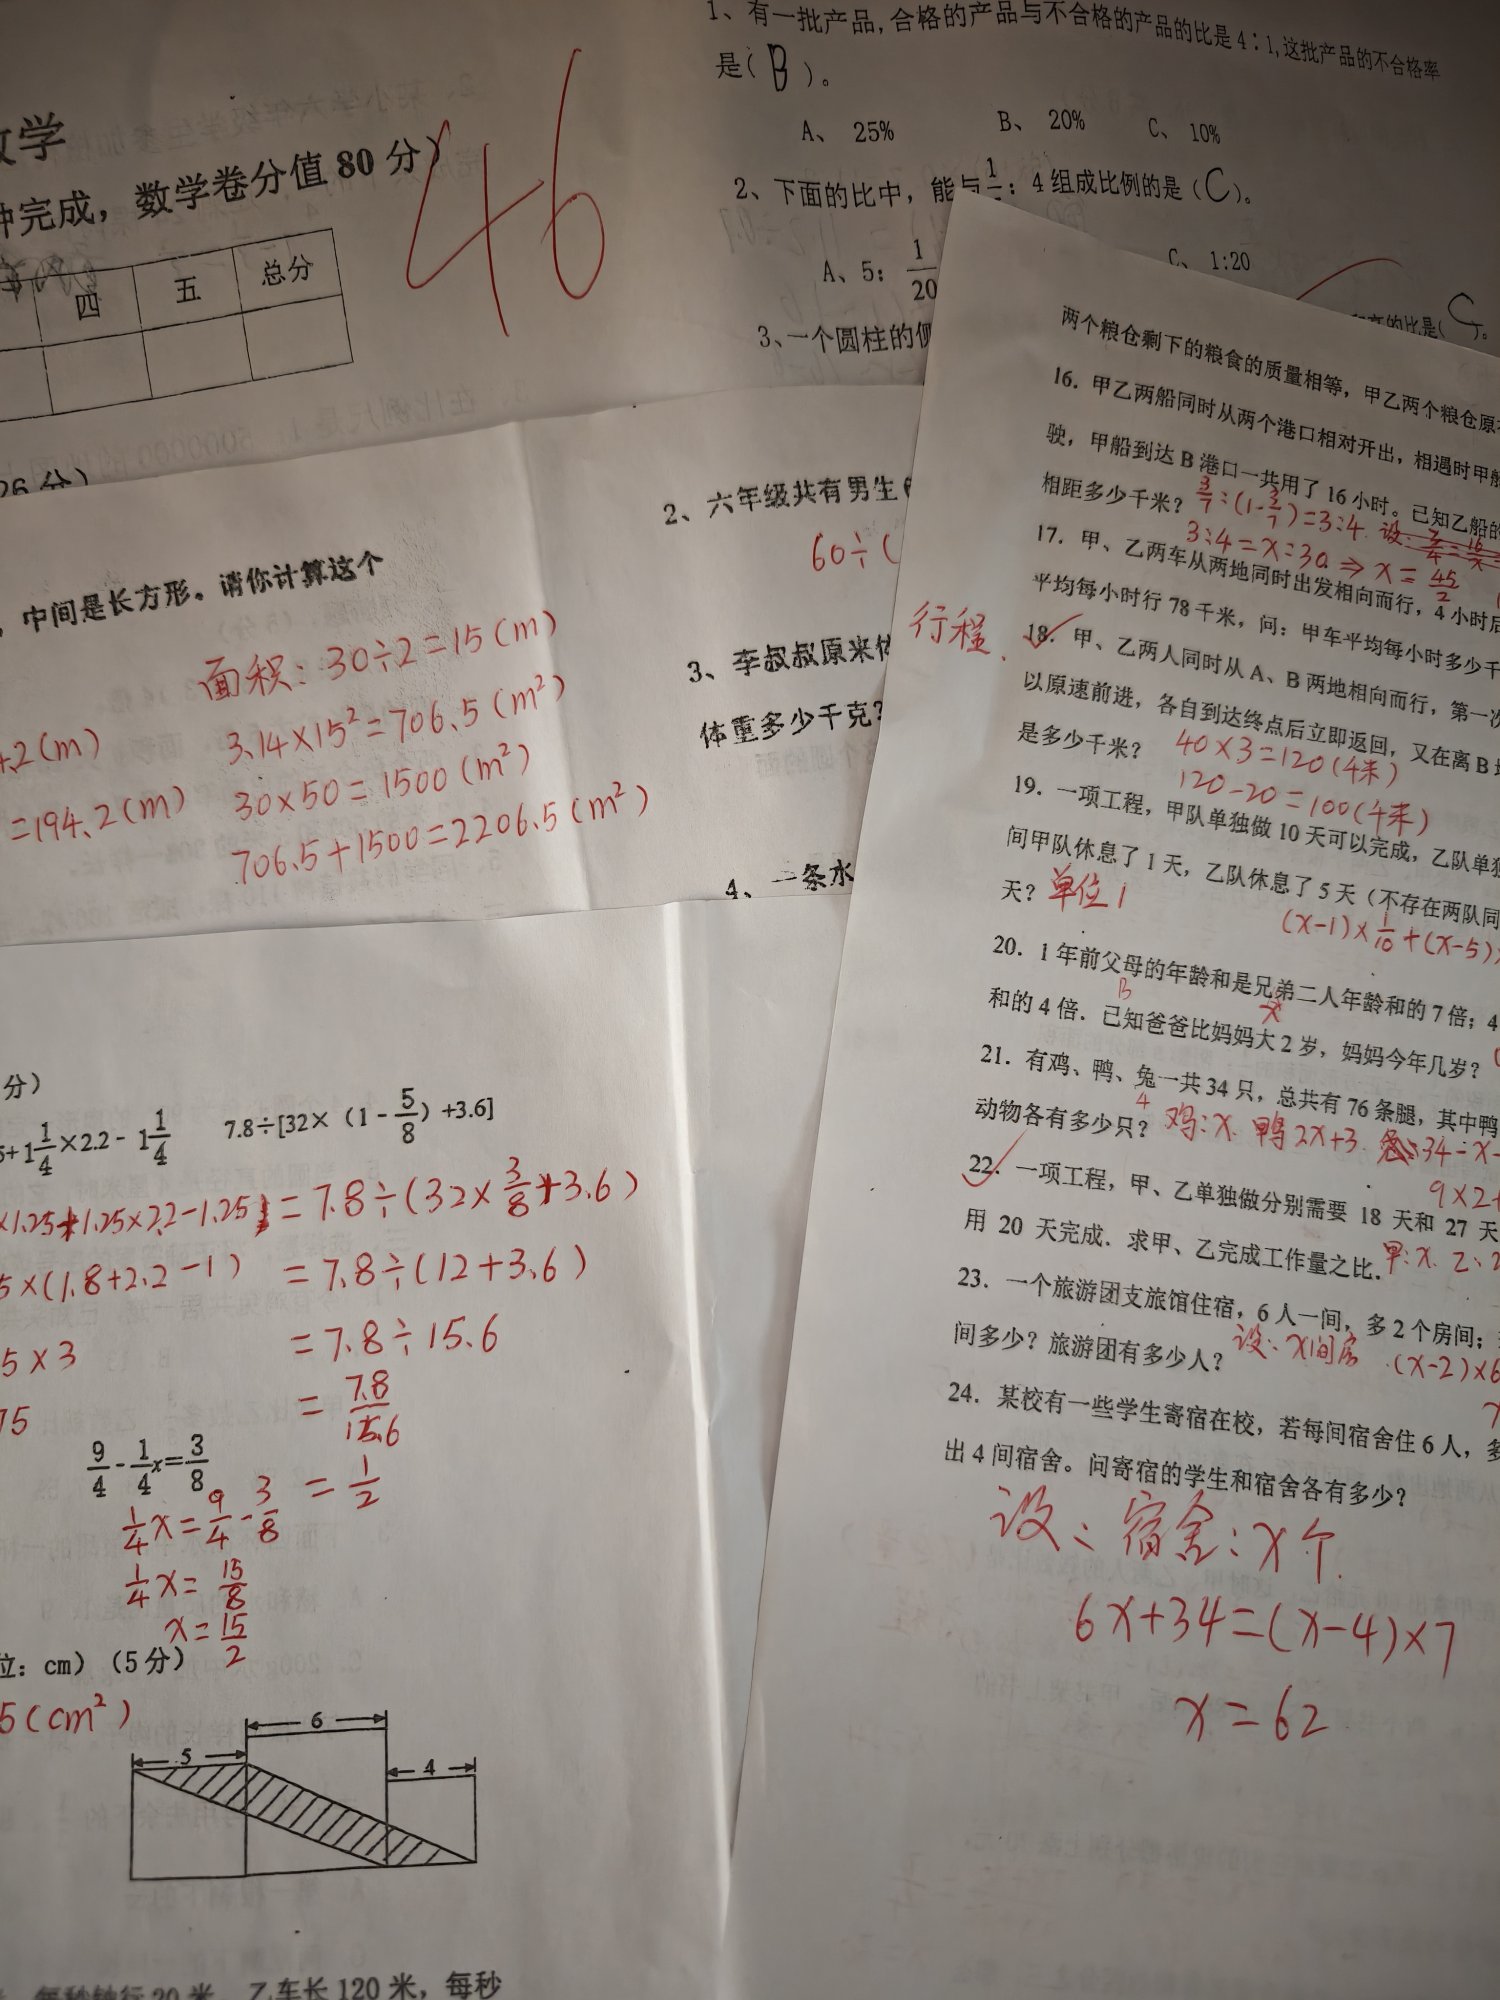 数学
钟完成，数学卷分值 80 分）
46
四 五 总分
26 分）
1、有一批产品,合格的产品与不合格的产品的比是 4∶1,这批产品的不合格率
是( B )。
A、 25% B、 20% C、 10%
2、下面的比中，能与 1/ : 4 组成比例的是（C）。
A、5: 1/20 C、 1:20
3、一个圆柱的侧
的比是( C )。
，中间是长方形。请你计算这个
面积: 30÷2=15(m)
3.14×15²=706.5(m²)
30×50=1500(m²)
706.5+1500=2206.5(m²)
4.2(m)
=194.2(m)
2、六年级共有男生
60÷(
3、李叔叔原来体
体重多少千克？
4、一条水
两个粮仓剩下的粮食的质量相等，甲乙两个粮仓原
16．甲乙两船同时从两个港口相对开出，相遇时甲船
驶，甲船到达 B 港口一共用了 16 小时。已知乙船的
相距多少千米？ 3/7:(1-3/7)=3:4. 设: 3/4=16/x
3:4=x:30 ⇒ x=45/2
17．甲、乙两车从两地同时出发相向而行，4 小时后
平均每小时行 78 千米，问：甲车平均每小时多少千
行程.
18．甲、乙两人同时从 A、B 两地相向而行，第一次
以原速前进，各自到达终点后立即返回，又在离 B
是多少千米？ 40×3=120(千米)
120-20=100(千米)
19．一项工程，甲队单独做 10 天可以完成，乙队单独
间甲队休息了 1 天，乙队休息了 5 天（不存在两队同
天？ 单位1
(x-1)×1/10+(x-5)
20．1 年前父母的年龄和是兄弟二人年龄和的 7 倍；4
B x
和的 4 倍．已知爸爸比妈妈大 2 岁，妈妈今年几岁？
21．有鸡、鸭、兔一共 34 只，总共有 76 条腿，其中鸭
4
动物各有多少只？ 鸡:x. 鸭 2x+3. 兔:34-x-
9×2+
22．一项工程，甲、乙单独做分别需要 18 天和 27 天
用 20 天完成．求甲、乙完成工作量之比． 甲:x. 乙:2
23．一个旅游团支旅馆住宿，6 人一间，多 2 个房间；
间多少？旅游团有多少人？ 设: x间房 (x-2)×6
24．某校有一些学生寄宿在校，若每间宿舍住 6 人，多
出 4 间宿舍。问寄宿的学生和宿舍各有多少？
设: 宿舍:x个.
6x+34=(x-4)×7
x=62
分）
+1 1/4×2.2-1 1/4 7.8÷[32×（1-5/8）+3.6]
×1.25+1.25×2.2-1.25 =7.8÷(32×3/8+3.6)
5×(1.8+2.2-1) =7.8÷(12+3.6)
5×3 =7.8÷15.6
75 =7.8/15.6
9/4-1/4x=3/8 =1/2
1/4x=9/4-3/8
1/4x=15/8
x=15/2
位：cm）(5 分)
5(cm²)
6
5
4
乙车长 120 米，每秒